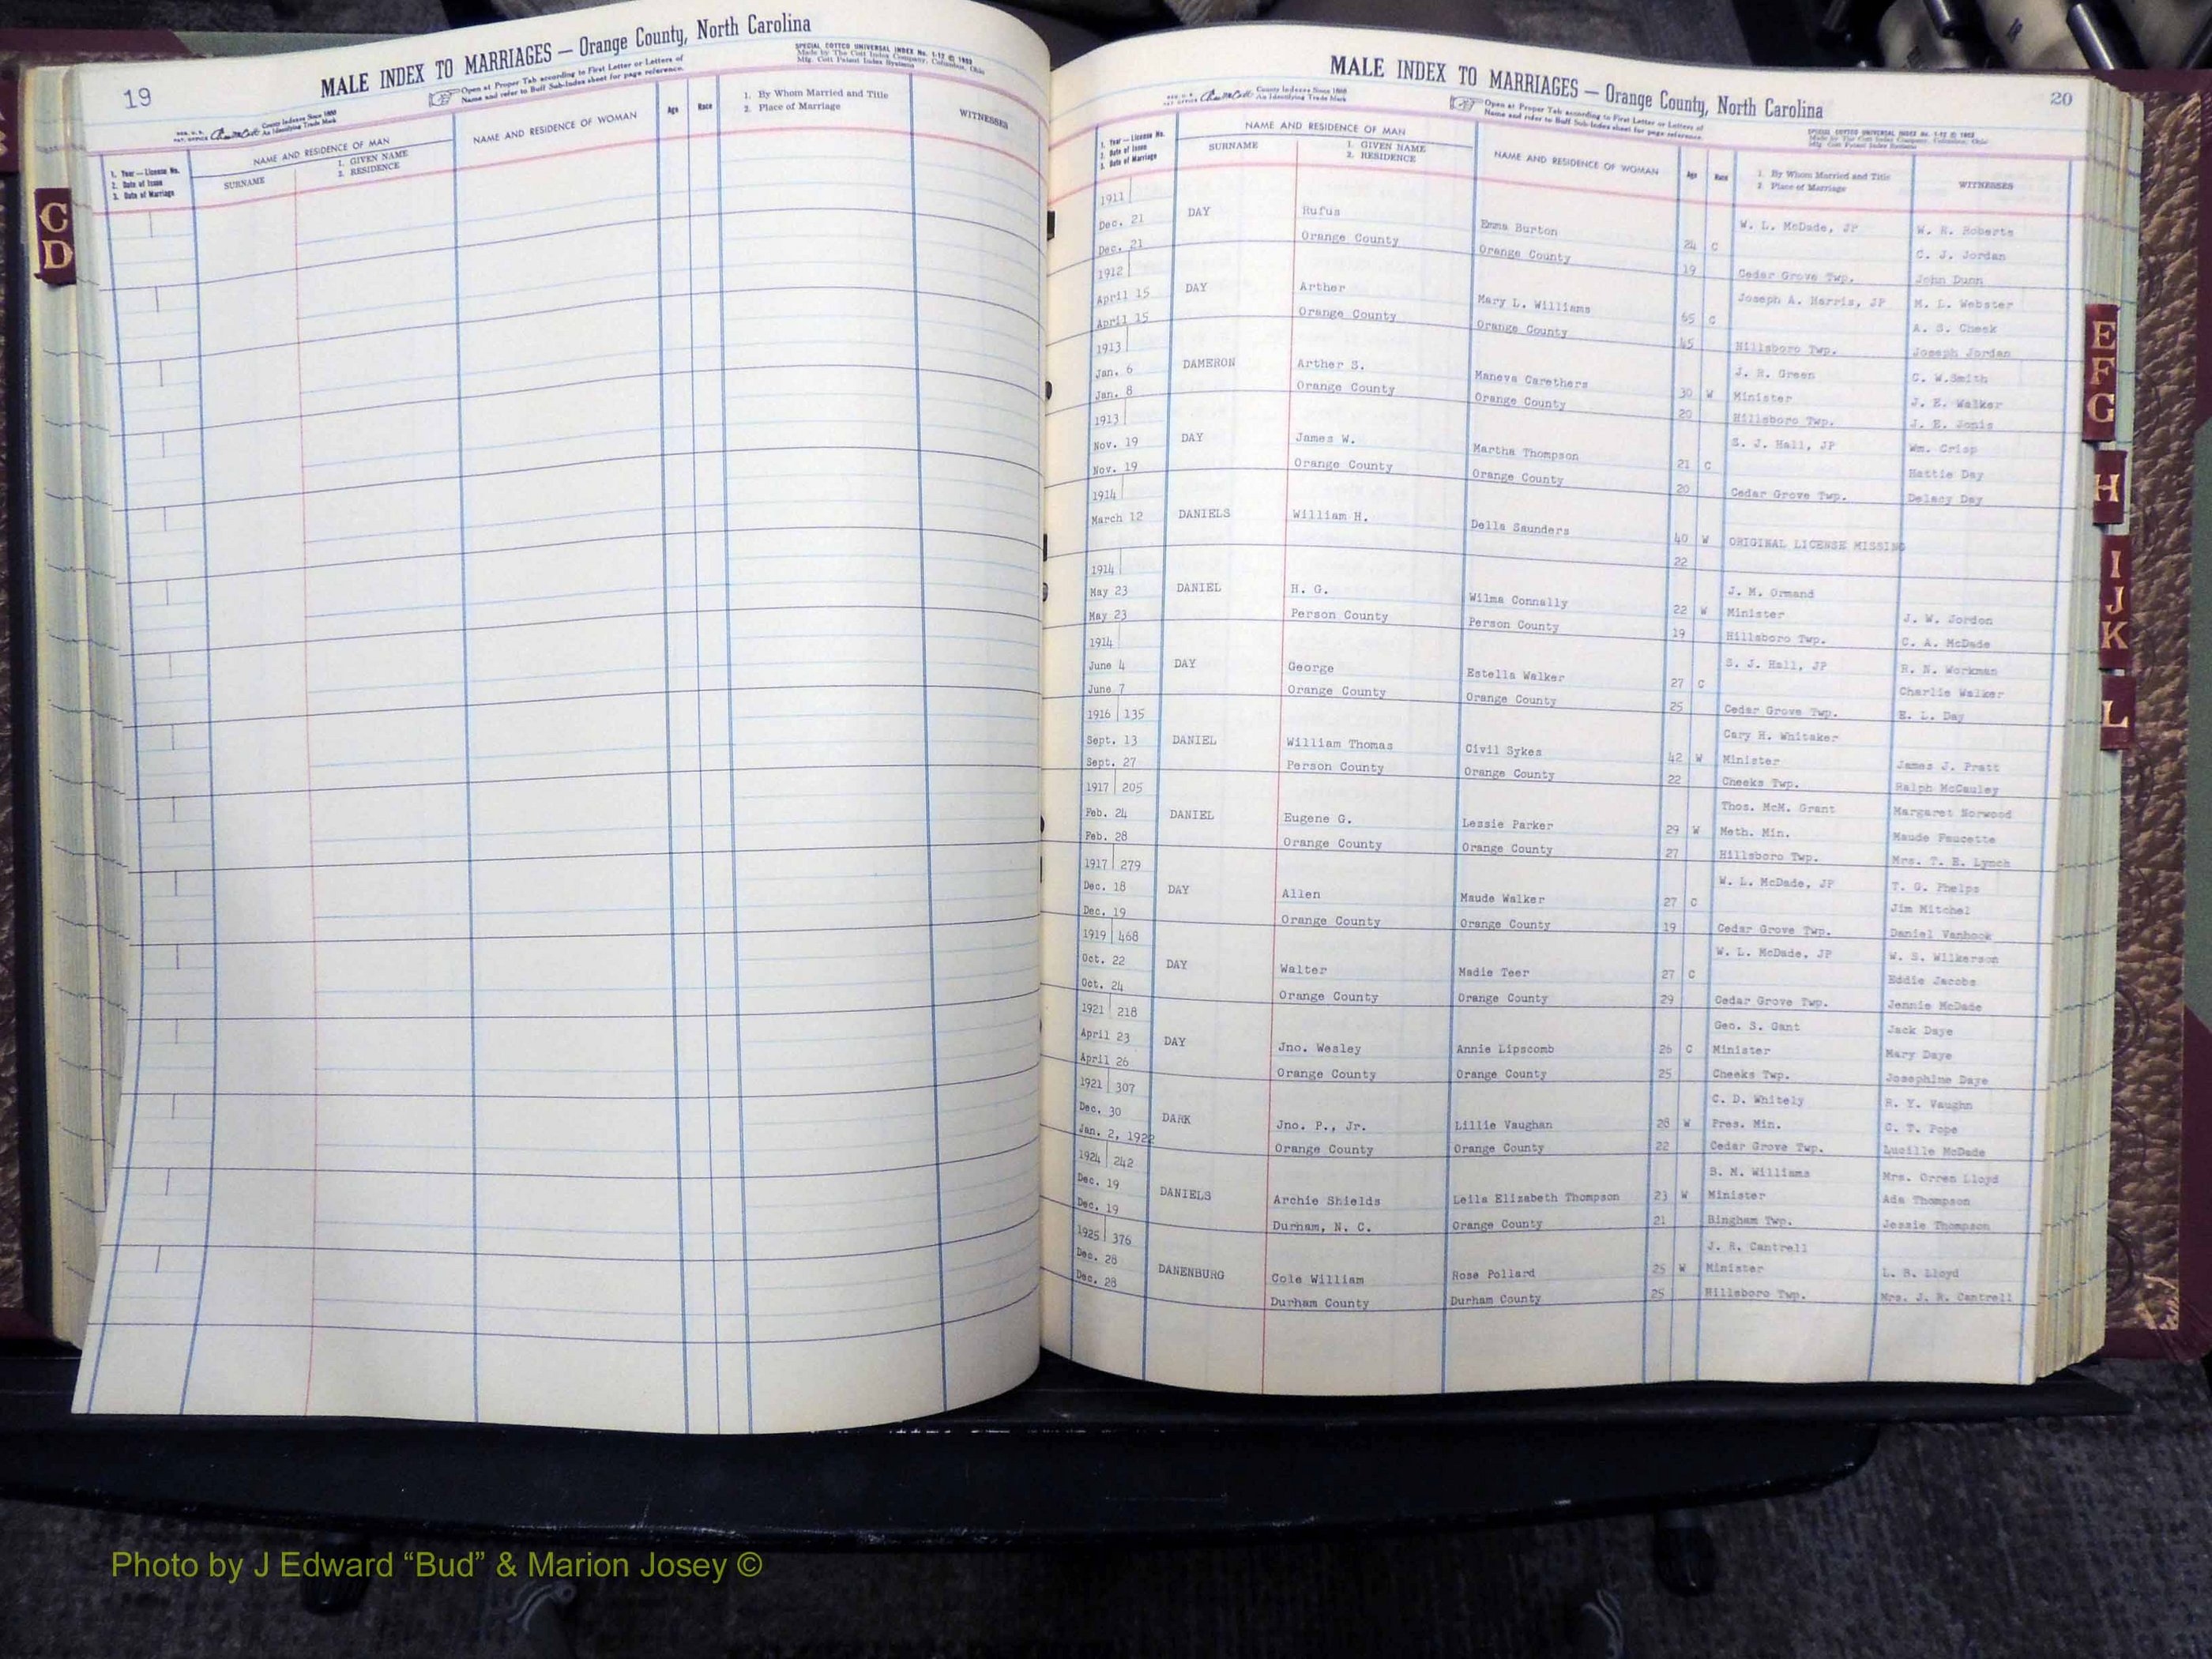 19
MALE INDEX TO MARRIAGES — Orange County, North Carolina
Open at Proper Tab according to First Letter or Letters of
Name and refer to Buff Sub-Index sheet for page reference.
SPECIAL COTTCO UNIVERSAL INDEX No. 1-12 © 1953
Made by The Cott Index Company, Columbus, Ohio
Mfg. Cott Patent Index Systems
County Indexes Since 1888
An Identifying Trade Mark
1. Year — License No.
2. Date of Issue
3. Date of Marriage
NAME AND RESIDENCE OF MAN
SURNAME
1. GIVEN NAME
2. RESIDENCE
NAME AND RESIDENCE OF WOMAN
Age
Race
1. By Whom Married and Title
2. Place of Marriage
WITNESSES
C
D
MALE INDEX TO MARRIAGES — Orange County, North Carolina
20
County Indexes Since 1888
An Identifying Trade Mark
Open at Proper Tab according to First Letter or Letters of
Name and refer to Buff Sub-Index sheet for page reference.
1. Year — License No.
2. Date of Issue
3. Date of Marriage
NAME AND RESIDENCE OF MAN
SURNAME
1. GIVEN NAME
2. RESIDENCE
NAME AND RESIDENCE OF WOMAN
Age
Race
1. By Whom Married and Title
2. Place of Marriage
WITNESSES
1911 W. L. McDade, JP W. R. Roberts
Dec. 21 DAY Rufus Emma Burton 24 C C. J. Jordan
Dec. 21 Orange County Orange County 19 Cedar Grove Twp. John Dunn
1912 Joseph A. Harris, JP M. L. Webster
April 15 DAY Arther Mary L. Williams 65 C A. S. Cheek
April 15 Orange County Orange County 45 Hillsboro Twp. Joseph Jordan
1913 J. R. Green C. W.Smith
Jan. 6 DAMERON Arther S. Maneva Carethers 30 W Minister J. E. Walker
Jan. 8 Orange County Orange County 20 Hillsboro Twp. J. E. Jonis
1913 S. J. Hall, JP Wm. Crisp
Nov. 19 DAY James W. Martha Thompson 21 C Hattie Day
Nov. 19 Orange County Orange County 20 Cedar Grove Twp. Delacy Day
1914
March 12 DANIELS William H. Della Saunders 40 W ORIGINAL LICENSE MISSING
22
1914 J. M. Ormand
May 23 DANIEL H. G. Wilma Connally 22 W Minister J. W. Jordon
May 23 Person County Person County 19 Hillsboro Twp. C. A. McDade
1914 S. J. Hall, JP R. N. Workman
June 4 DAY George Estella Walker 27 C Charlie Walker
June 7 Orange County Orange County 25 Cedar Grove Twp. E. L. Day
1916 135 Cary H. Whitaker
Sept. 13 DANIEL William Thomas Civil Sykes 42 W Minister James J. Pratt
Sept. 27 Person County Orange County 22 Cheeks Twp. Ralph McCauley
1917 205 Thos. McM. Grant Margaret Norwood
Feb. 24 DANIEL Eugene G. Lessie Parker 29 W Meth. Min. Maude Faucette
Feb. 28 Orange County Orange County 27 Hillsboro Twp. Mrs. T. E. Lynch
1917 279 W. L. McDade, JP T. G. Phelps
Dec. 18 DAY Allen Maude Walker 27 C Jim Mitchel
Dec. 19 Orange County Orange County 19 Cedar Grove Twp. Daniel Vanhook
1919 468 W. L. McDade, JP W. S. Wilkerson
Oct. 22 DAY Walter Madie Teer 27 C Eddie Jacobs
Oct. 24 Orange County Orange County 29 Cedar Grove Twp. Jennie McDade
1921 218 Geo. S. Gant Jack Daye
April 23 DAY Jno. Wesley Annie Lipscomb 26 C Minister Mary Daye
April 26 Orange County Orange County 25 Cheeks Twp. Josephine Daye
1921 307 C. D. Whitely R. Y. Vaughn
Dec. 30 DARK Jno. P., Jr. Lillie Vaughan 28 W Pres. Min. C. T. Pope
Jan. 2, 1922 Orange County Orange County 22 Cedar Grove Twp. Lucille McDade
1924 242 B. M. Williams Mrs. Orren Lloyd
Dec. 19 DANIELS Archie Shields Leila Elizabeth Thompson 23 W Minister Ada Thompson
Dec. 19 Durham, N. C. Orange County 21 Bingham Twp. Jessie Thompson
1925 376 J. R. Cantrell
Dec. 28 DANENBURG Cole William Rose Pollard 25 W Minister L. B. Lloyd
Dec. 28 Durham County Durham County 25 Hillsboro Twp. Mrs. J. R. Cantrell
E
F
G
H
I
J
K
L
Photo by J Edward “Bud” & Marion Josey ©